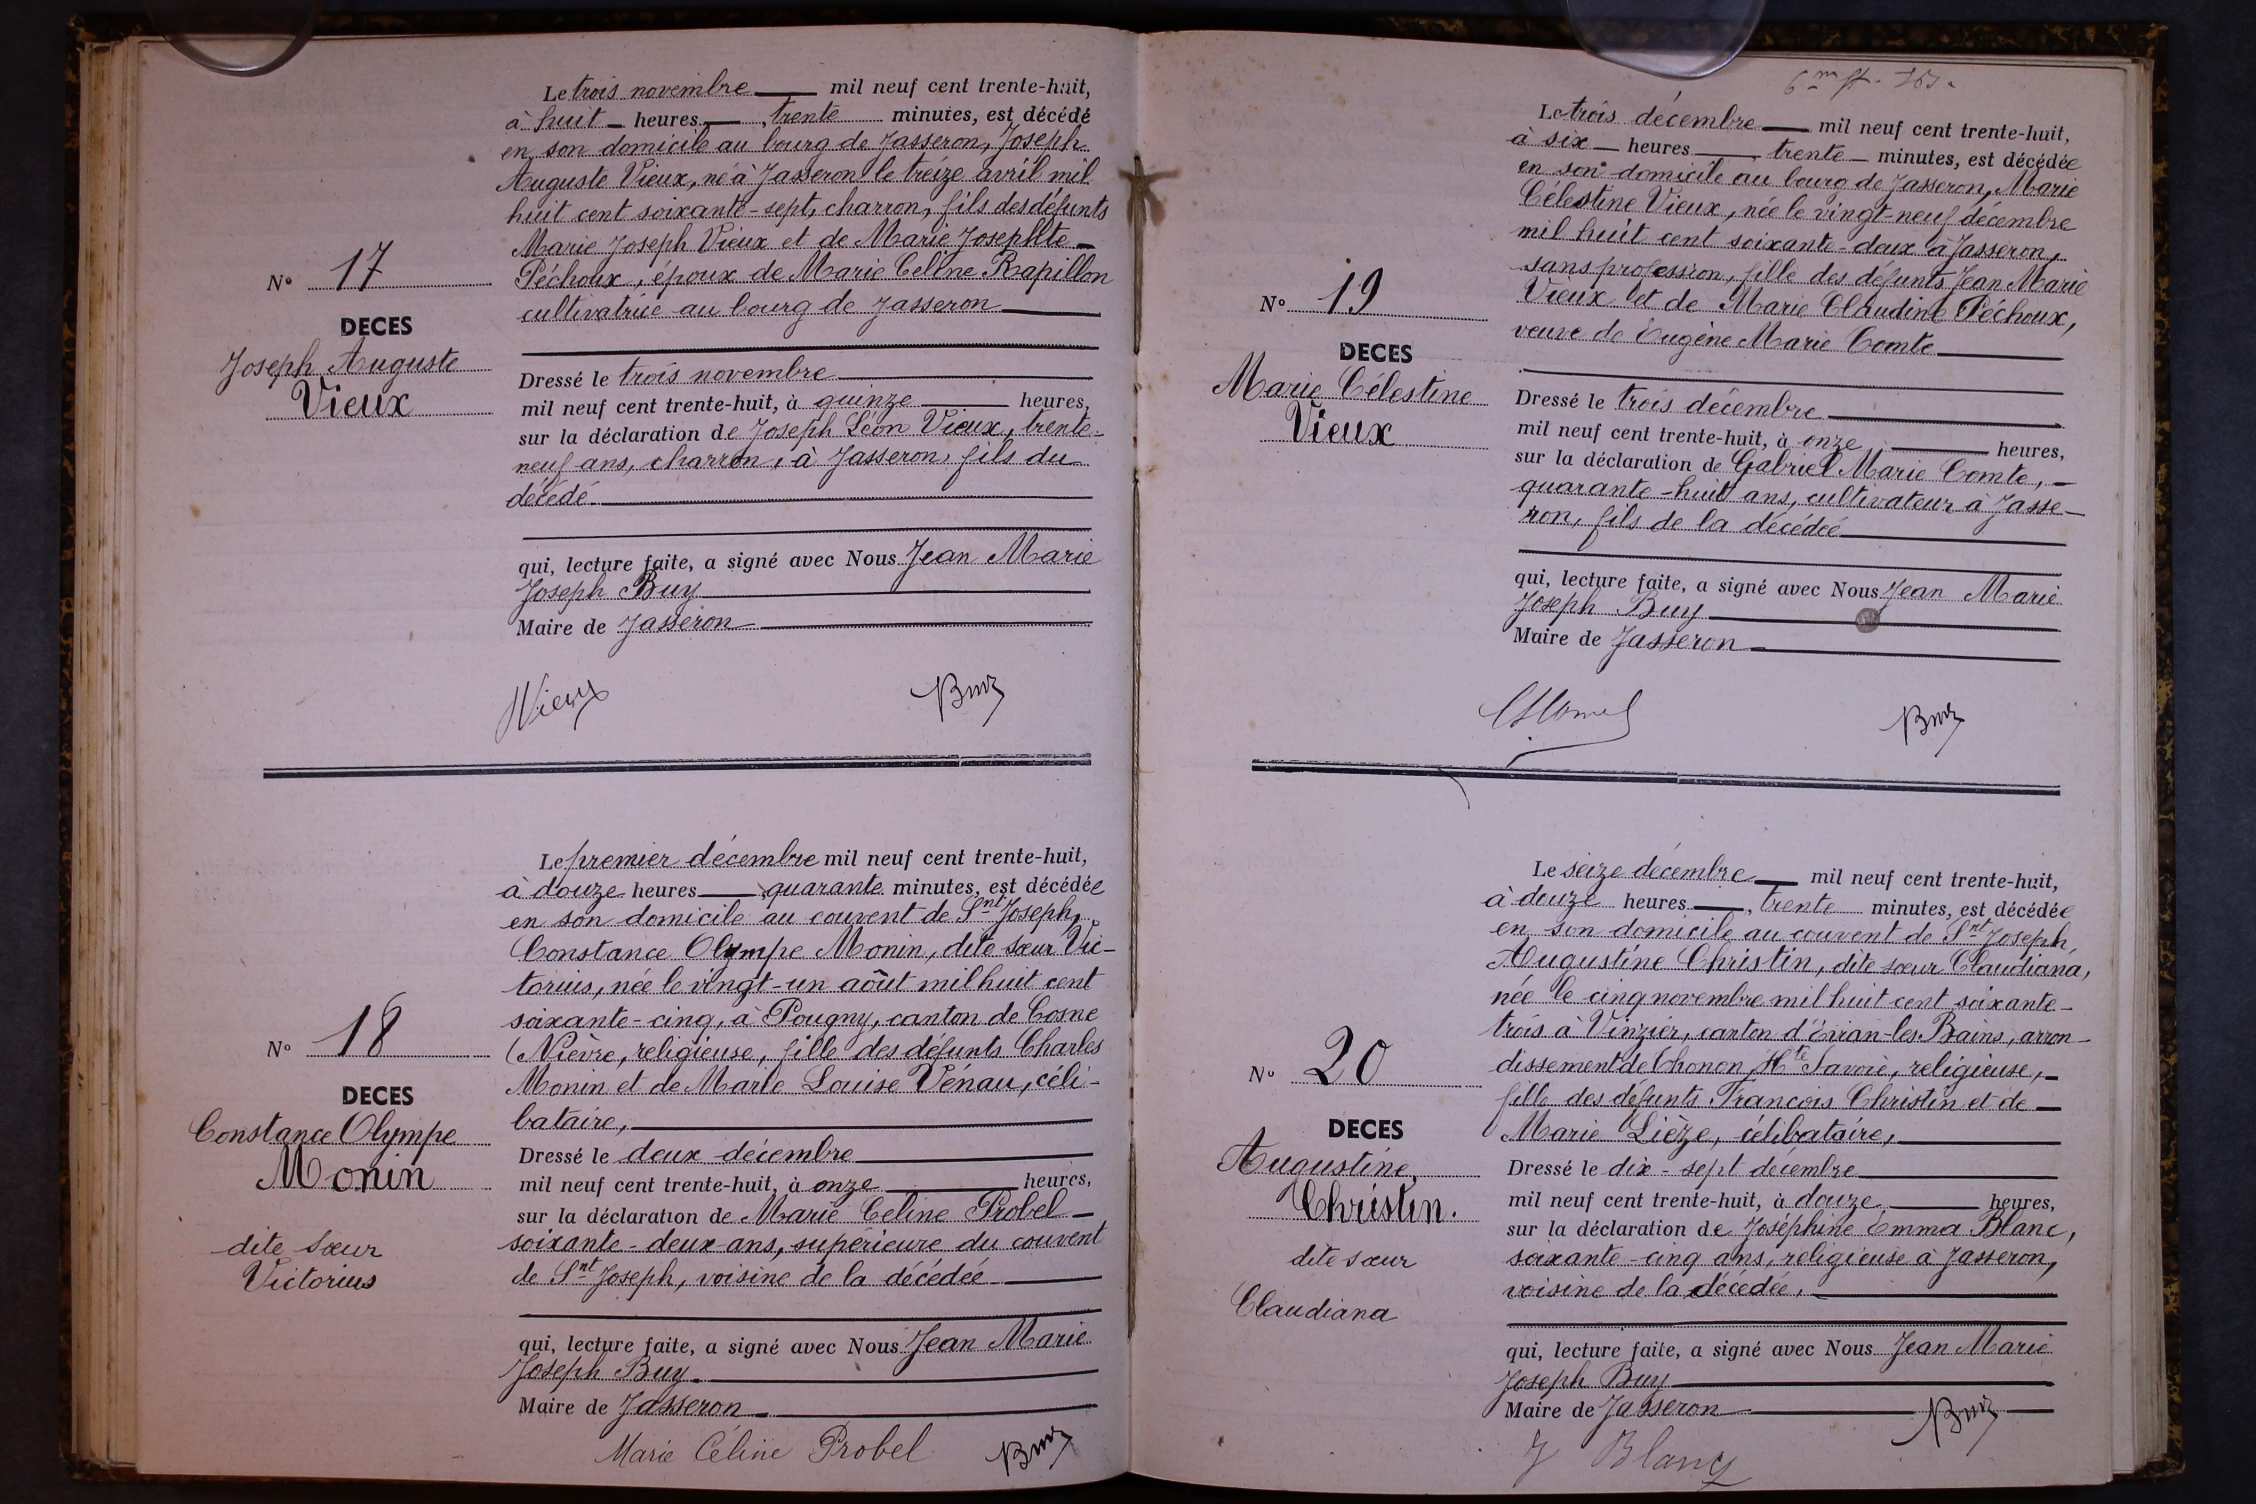 Le trois novembre mil neuf cent trente-huit,
à huit heures, trente minutes, est décédé
en son domicile au bourg de Jasseron, Joseph
Auguste Vieux, né à Jasseron le treize avril mil
huit cent soixante-sept, charron, fils des défunts
Marie Joseph Vieux et de Marie Josephte
Péchoux, époux de Marie Celine Rapillon
cultivatrice au bourg de Jasseron
N° 17
DECES
Joseph Auguste
Vieux
Dressé le trois novembre
mil neuf cent trente-huit, à quinze heures,
sur la déclaration de Joseph Léon Vieux, trente-
neuf ans, charron, à Jasseron, fils du
décédé
qui, lecture faite, a signé avec Nous Jean Marie
Joseph Buy
Maire de Jasseron
Vieux Buy
Le premier décembre mil neuf cent trente-huit,
à douze heures, quarante minutes, est décédée
en son domicile au couvent de Snt Joseph,
Constance Olympe Monin, dite sœur Vic-
torius, née le vingt-un août mil huit cent
soixante-cinq, à Pougny, canton de Cosne
(Nièvre, religieuse, fille des défunts Charles
Monin et de Marie Louise Vénau, céli-
bataire,
N° 18
DECES
Constance Olympe
Monin
dite sœur
Victorius
Dressé le deux décembre
mil neuf cent trente-huit, à onze heures,
sur la déclaration de Marie Celine Probel
soixante-deux ans, supérieure du couvent
de Snt Joseph, voisine de la décédée
qui, lecture faite, a signé avec Nous Jean Marie
Joseph Buy.
Maire de Jasseron
Marie Céline Probel Buy
Le trois décembre mil neuf cent trente-huit,
à six heures, trente minutes, est décédée
en son domicile au bourg de Jasseron, Marie
Célestine Vieux, née le vingt-neuf décembre
mil huit cent soixante-deux à Jasseron,
sans profession, fille des défunts Jean Marie
Vieux et de Marie Claudine Péchoux,
veuve de Eugène Marie Comte
N° 19
DECES
Marie Célestine
Vieux
Dressé le trois décembre
mil neuf cent trente-huit, à onze heures,
sur la déclaration de Gabriel Marie Comte,
quarante-huit ans, cultivateur à Jasse-
ron, fils de la décédée
qui, lecture faite, a signé avec Nous Jean Marie
Joseph Buy
Maire de Jasseron
Buy
Le seize décembre mil neuf cent trente-huit,
à douze heures, trente minutes, est décédée
en son domicile au couvent de Snt Joseph,
Augustine Christin, dite sœur Claudiana,
née le cinq novembre mil huit cent soixante-
trois à Vinzier, canton d'Evian-les-Bains, arron-
dissement de Thonon, Hte Savoie, religieuse,
fille des défunts François Christin et de
Marie Lièze, célibataire,
N° 20
DECES
Augustine,
Christin.
dite sœur
Claudiana
Dressé le dix-sept décembre
mil neuf cent trente-huit, à douze heures,
sur la déclaration de Joséphine Emma Blanc,
soixante-cinq ans, religieuse à Jasseron,
voisine de la décédée,
qui, lecture faite, a signé avec Nous Jean Marie
Joseph Buy
Maire de Jasseron Buy
J Blanc